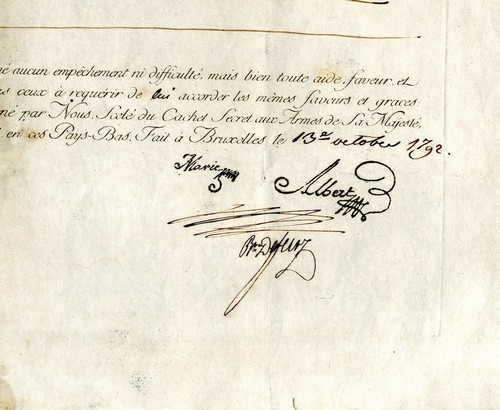 né aucun empêchement ni difficulté, mais bien toute aide, faveur et
ceux à requérir de lui accorder les mêmes faveurs et graces
né par Nous, Scélé du Cachet Secret aux Armes de Sa Majesté,
en ces Pays-Bas. Fait à Bruxelles le 13e octobre 1792.
Marie Albert